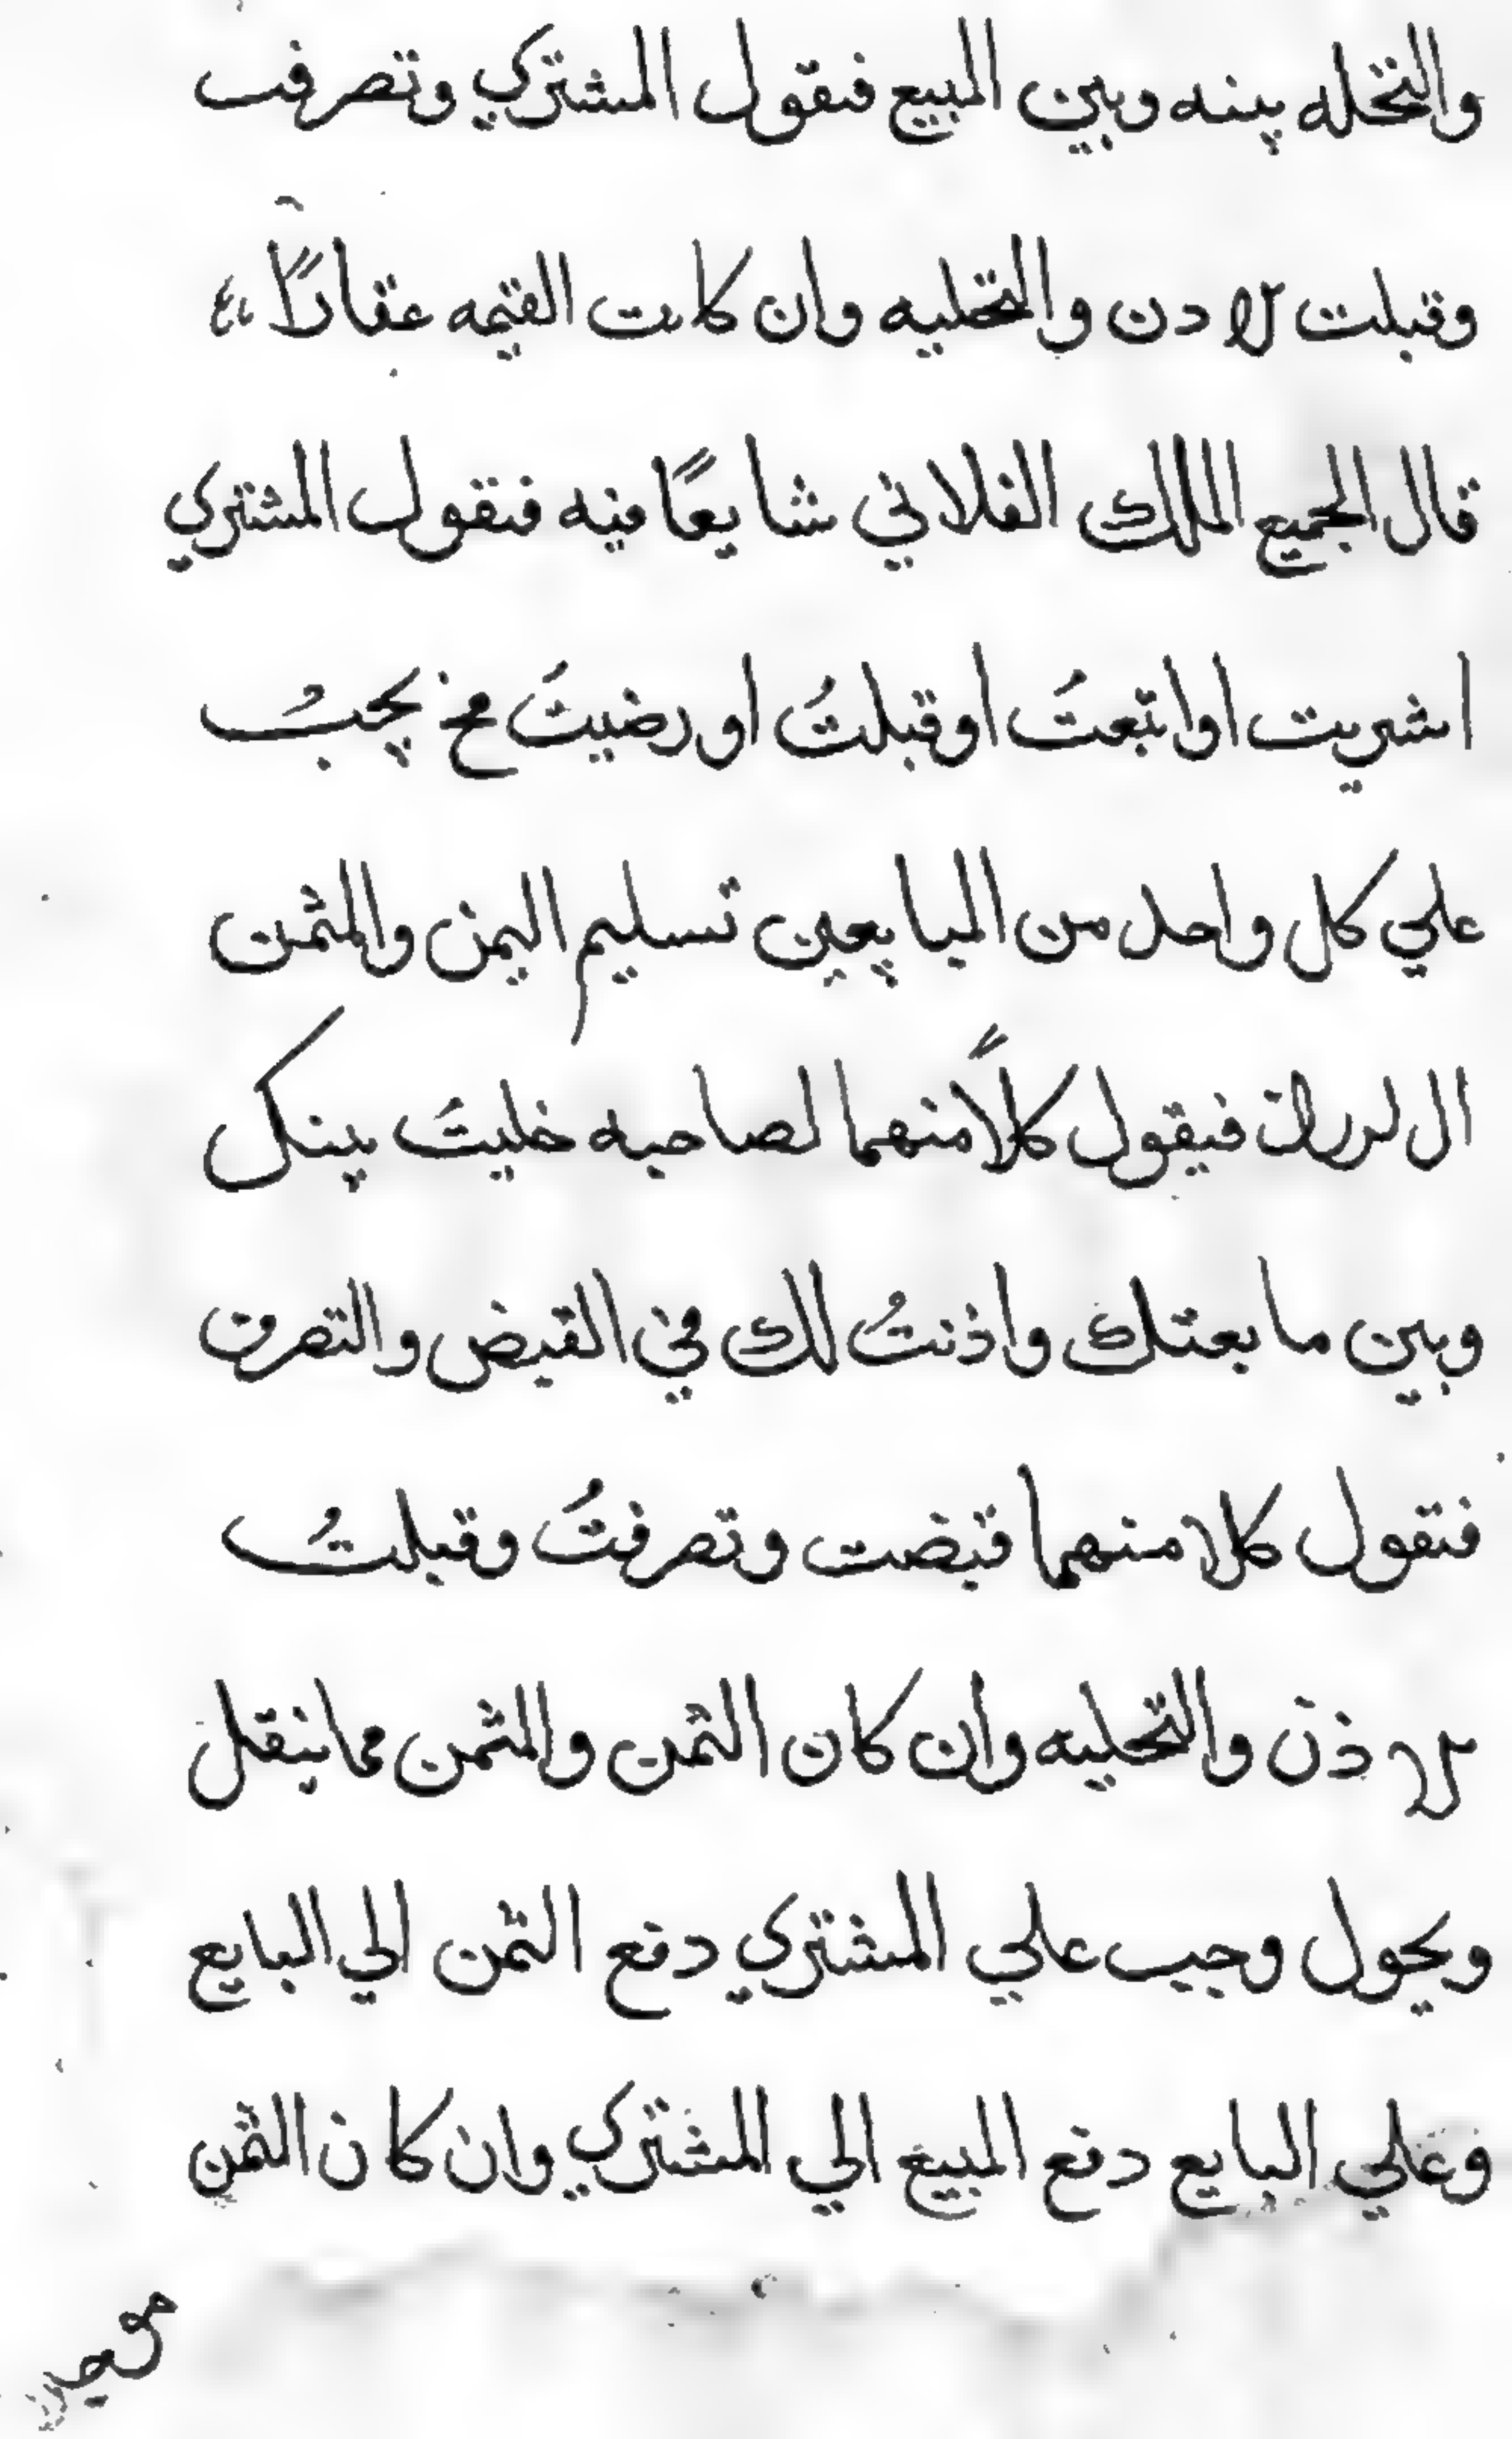 والتخله بينه وبين المبيع فنقول المشتري وتصرفت
وقبلت الادن والتخليه وان كانت القيمه عقارًا
قال الجميع الملك الفلاني شايعًا فيه فنقول المشتري
اشريت او ابتعتَ او قبلتُ او رضيتَ مح يجبُ
علي كل واحد من المبايعين تسليم اليمن والمثمن
فيقول كلاً منهما لصاحبه خليتَ بينك
وبين ما بعتك واذنتُ لك في القبض والتصرف
فتقول كلا منهما قبضت وتصرفتُ وقبلتُ
الاذن والتخليه وان كان الثمن والمثمن مما ينقل
ويحول وجب علي المشتري دفع الثمن الي البايع
وعلي البايع دفع المبيع الي المشتري وان كان الثمن